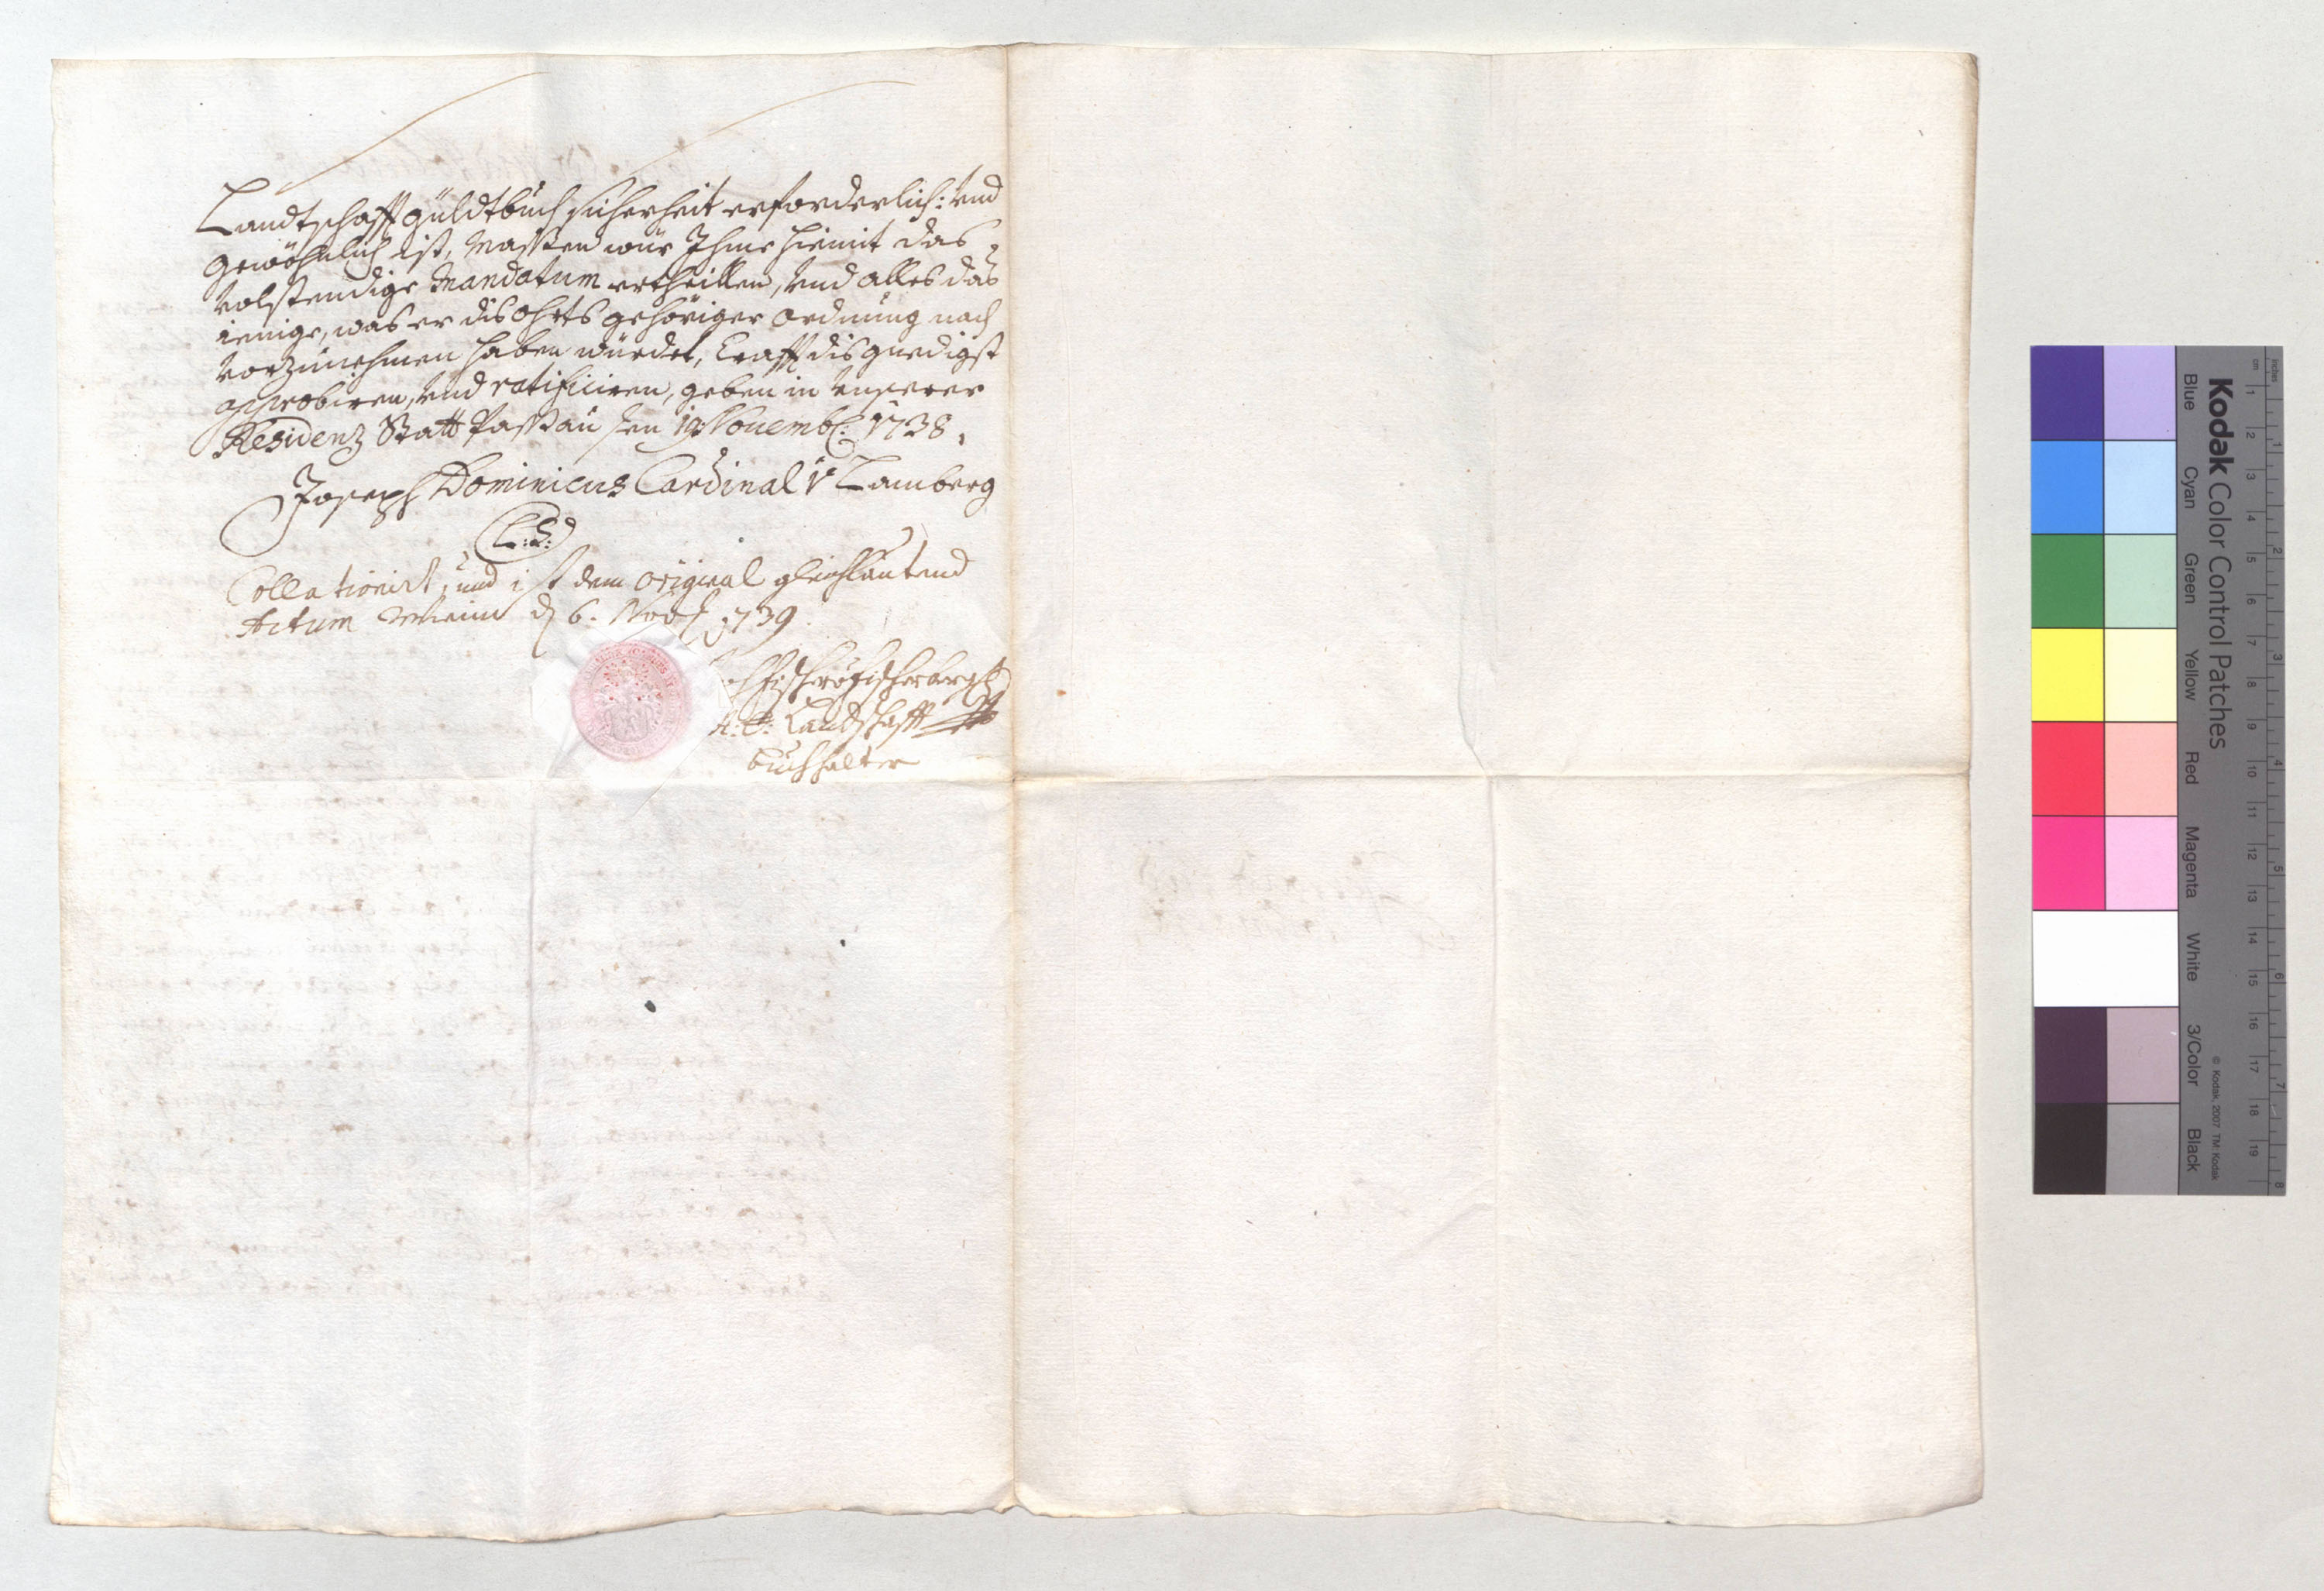 Landtschafft güldtbuch sicherheit erforderlich: vnd
gewöhnlich ist, Massen wür Ihme hiemit das
volstendige Mandatum ertheillen, vnd alles das
ienige, was er dis ohrts gehöriger ordnung nach
vorzunehmen haben würdet, Crafft dis gnedigst
approbiren, vnd ratificiren, geben in vnserer
Residenz Statt Passau den 19 Novemb: 1738.
Joseph Dominicus Cardinal v Lamberg
L: S:
Collationirt, und ist dem original gleichlautend
Actum Wienn d 6. Nov 1739.
Fischer v Fischerberg
Landtschafft
buchhalter
Kodak Color Control Patches
Blue Cyan Green Yellow Red Magenta White 3/Color Black
© Kodak, 2007 TM: Kodak
inches 1 2 3 4 5 6 7 8
cm 1 2 3 4 5 6 7 8 9 10 11 12 13 14 15 16 17 18 19